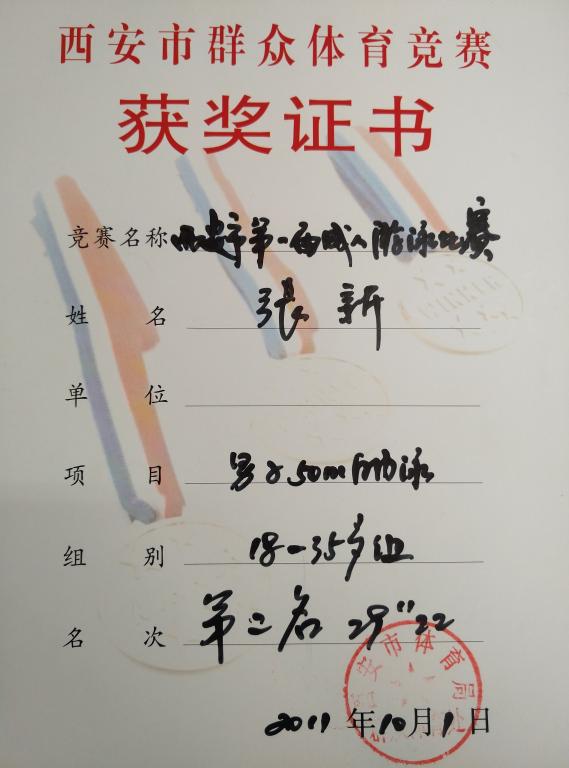 西安市群众体育竞赛
获奖证书
竞赛名称 西安市第一届成人游泳比赛
姓名 張新
单位
项目 男子50m自由泳
组别 18-35岁组
名次 第二名 29"22
西安市体育局
2011年10月1日